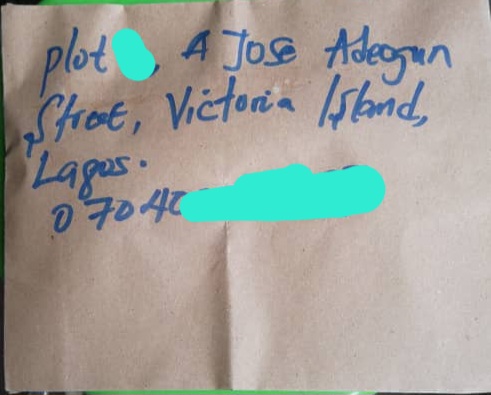 plot , A Jose Adeogun
Street, Victoria Island,
Lagos.
0 7040